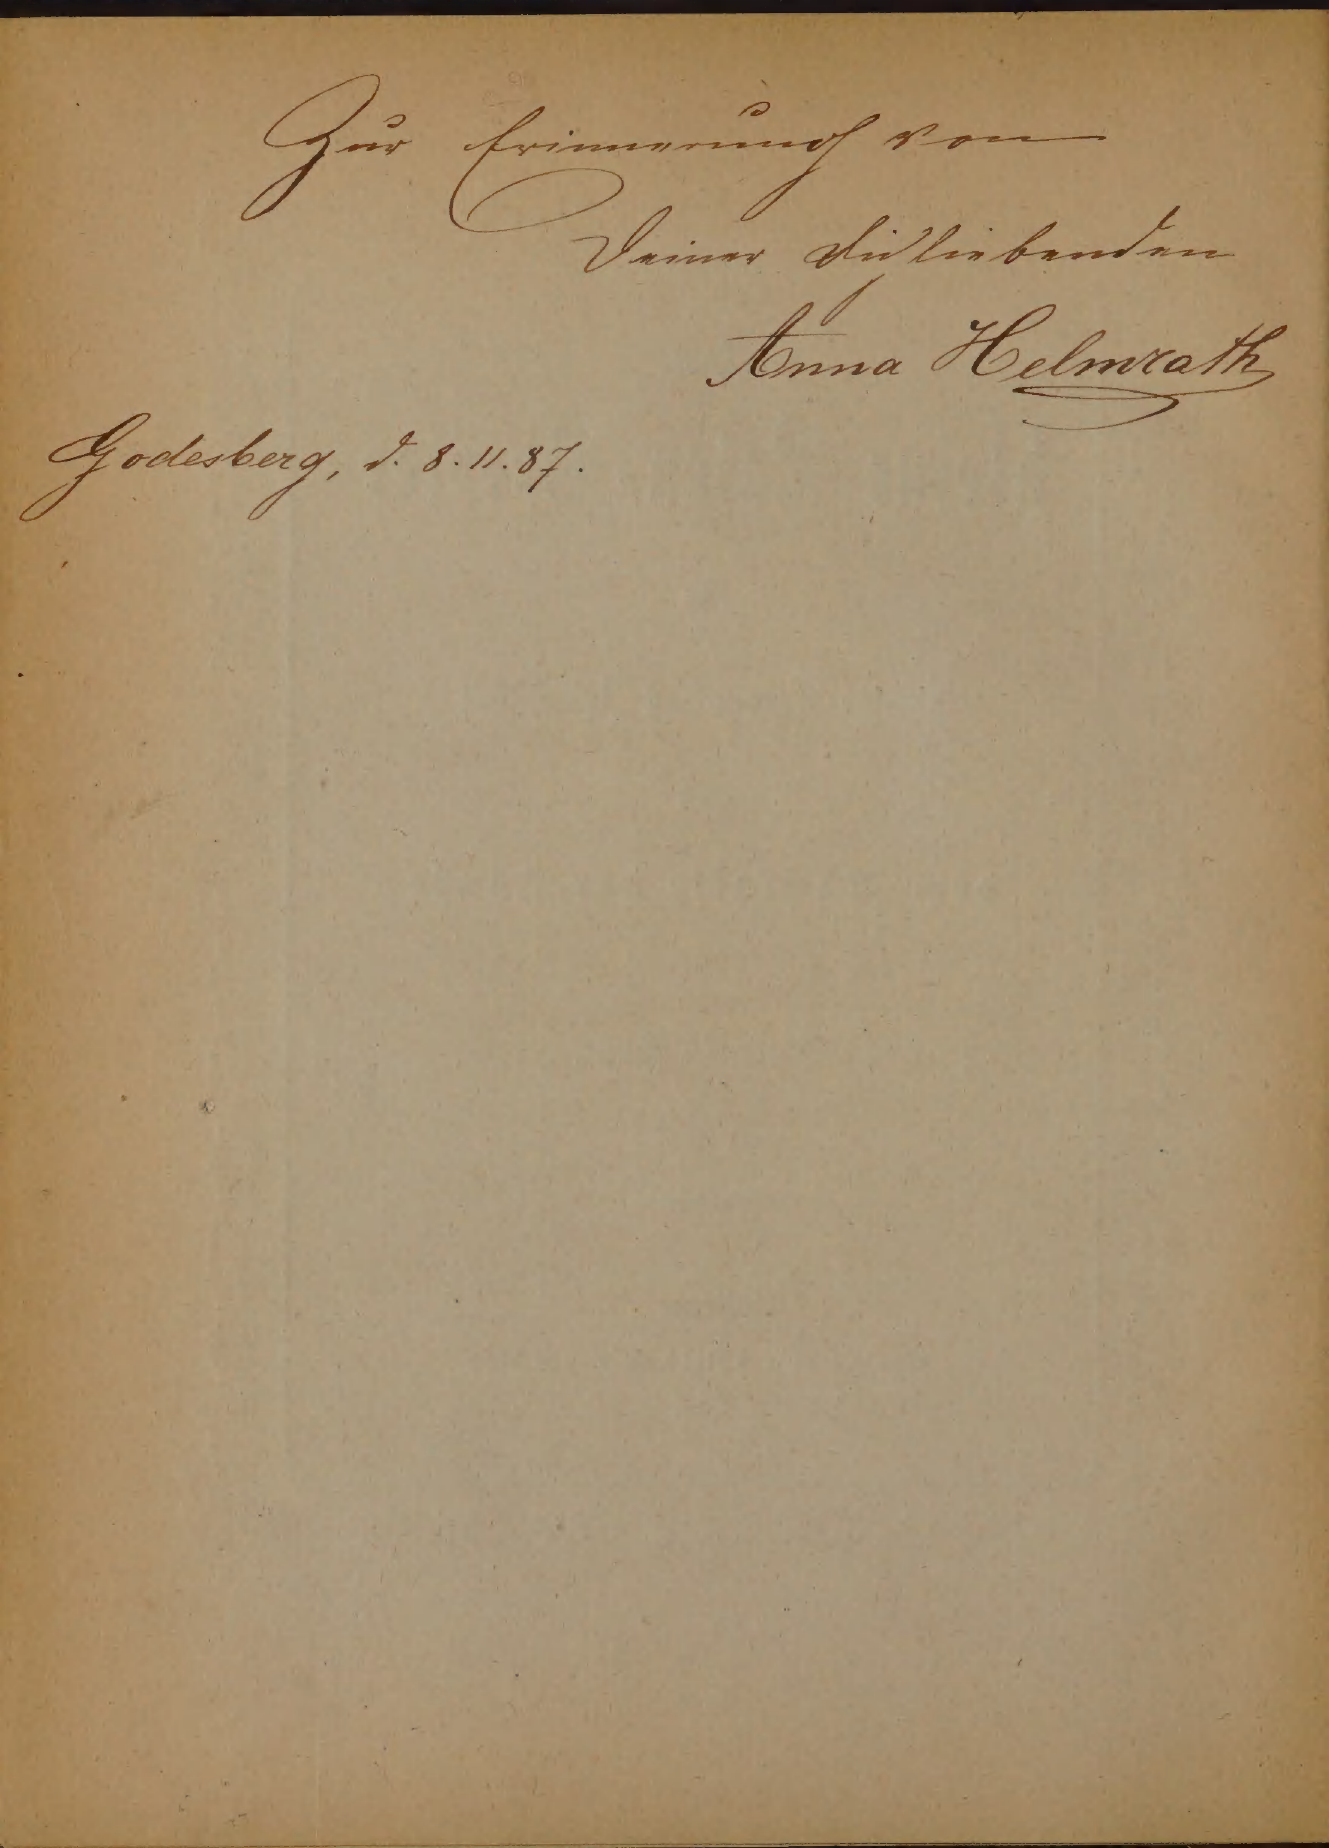 Zur Erinnerung von
Deiner dich liebenden
Anna Helmrath
Godesberg, d. 8. 11. 87.